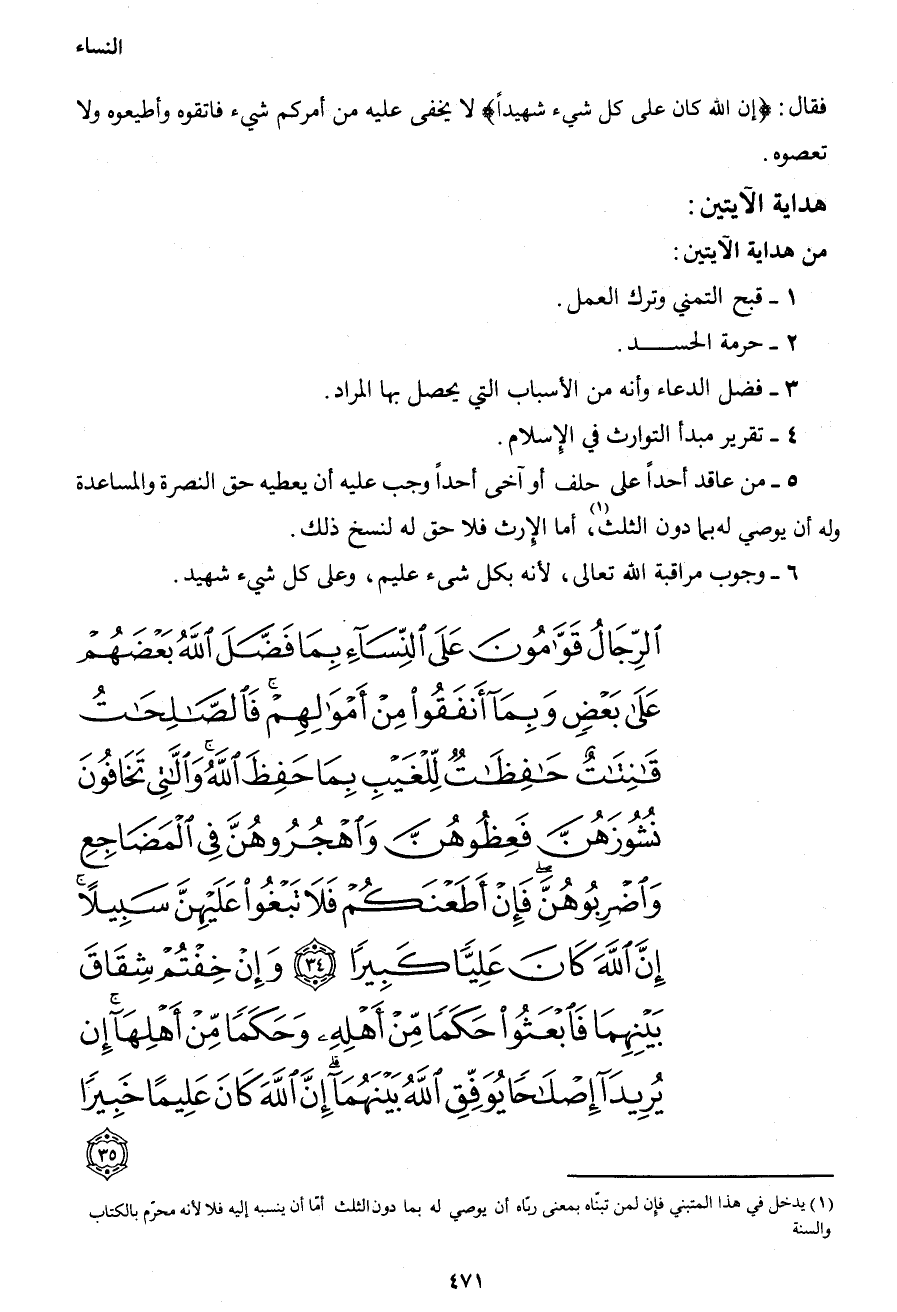 النساء
فقال : ﴿إن الله كان على كل شيء شهيداً﴾ لا يخفى عليه من أمركم شيء فاتقوه وأطيعوه ولا
تعصوه .
هداية الآيتين :
من هداية الآيتين :
١ - قبح التمني وترك العمل .
٢ - حرمة الحســـــد .
٣ - فضل الدعاء وأنه من الأسباب التي يحصل بها المراد .
٤ - تقرير مبدأ التوارث في الإسلام .
٥ - من عاقد أحداً على حلف أو آخى أحداً وجب عليه أن يعطيه حق النصرة والمساعدة
وله أن يوصي له بما دون الثلث(١)، أما الإرث فلا حق له لنسخ ذلك .
٦ - وجوب مراقبة الله تعالى، لأنه بكل شىء عليم، وعلى كل شيء شهيد .
ٱلرِّجَالُ قَوَّٰمُونَ عَلَى ٱلنِّسَآءِ بِمَا فَضَّلَ ٱللَّهُ بَعْضَهُمْ
عَلَىٰ بَعْضٍ وَبِمَآ أَنفَقُوا۟ مِنْ أَمْوَٰلِهِمْ ۚ فَٱلصَّـٰلِحَـٰتُ
قَـٰنِتَـٰتٌ حَـٰفِظَـٰتٌ لِّلْغَيْبِ بِمَا حَفِظَ ٱللَّهُ ۚ وَٱلَّـٰتِى تَخَافُونَ
نُشُوزَهُنَّ فَعِظُوهُنَّ وَٱهْجُرُوهُنَّ فِى ٱلْمَضَاجِعِ
وَٱضْرِبُوهُنَّ ۖ فَإِنْ أَطَعْنَكُمْ فَلَا تَبْغُوا۟ عَلَيْهِنَّ سَبِيلًا ۗ
إِنَّ ٱللَّهَ كَانَ عَلِيًّا كَبِيرًا ٣٤ وَإِنْ خِفْتُمْ شِقَاقَ
بَيْنِهِمَا فَٱبْعَثُوا۟ حَكَمًا مِّنْ أَهْلِهِۦ وَحَكَمًا مِّنْ أَهْلِهَآ ۚ إِن
يُرِيدَآ إِصْلَـٰحًا يُوَفِّقِ ٱللَّهُ بَيْنَهُمَآ ۗ إِنَّ ٱللَّهَ كَانَ عَلِيمًا خَبِيرًا
٣٥
(١) يدخل في هذا المتبني فإن لمن تبنّاه بمعنى ربّاه أن يوصي له بما دون الثلث أمّا أن ينسبه إليه فلا لأنه محرّم بالكتاب
والسنة
٤٧١